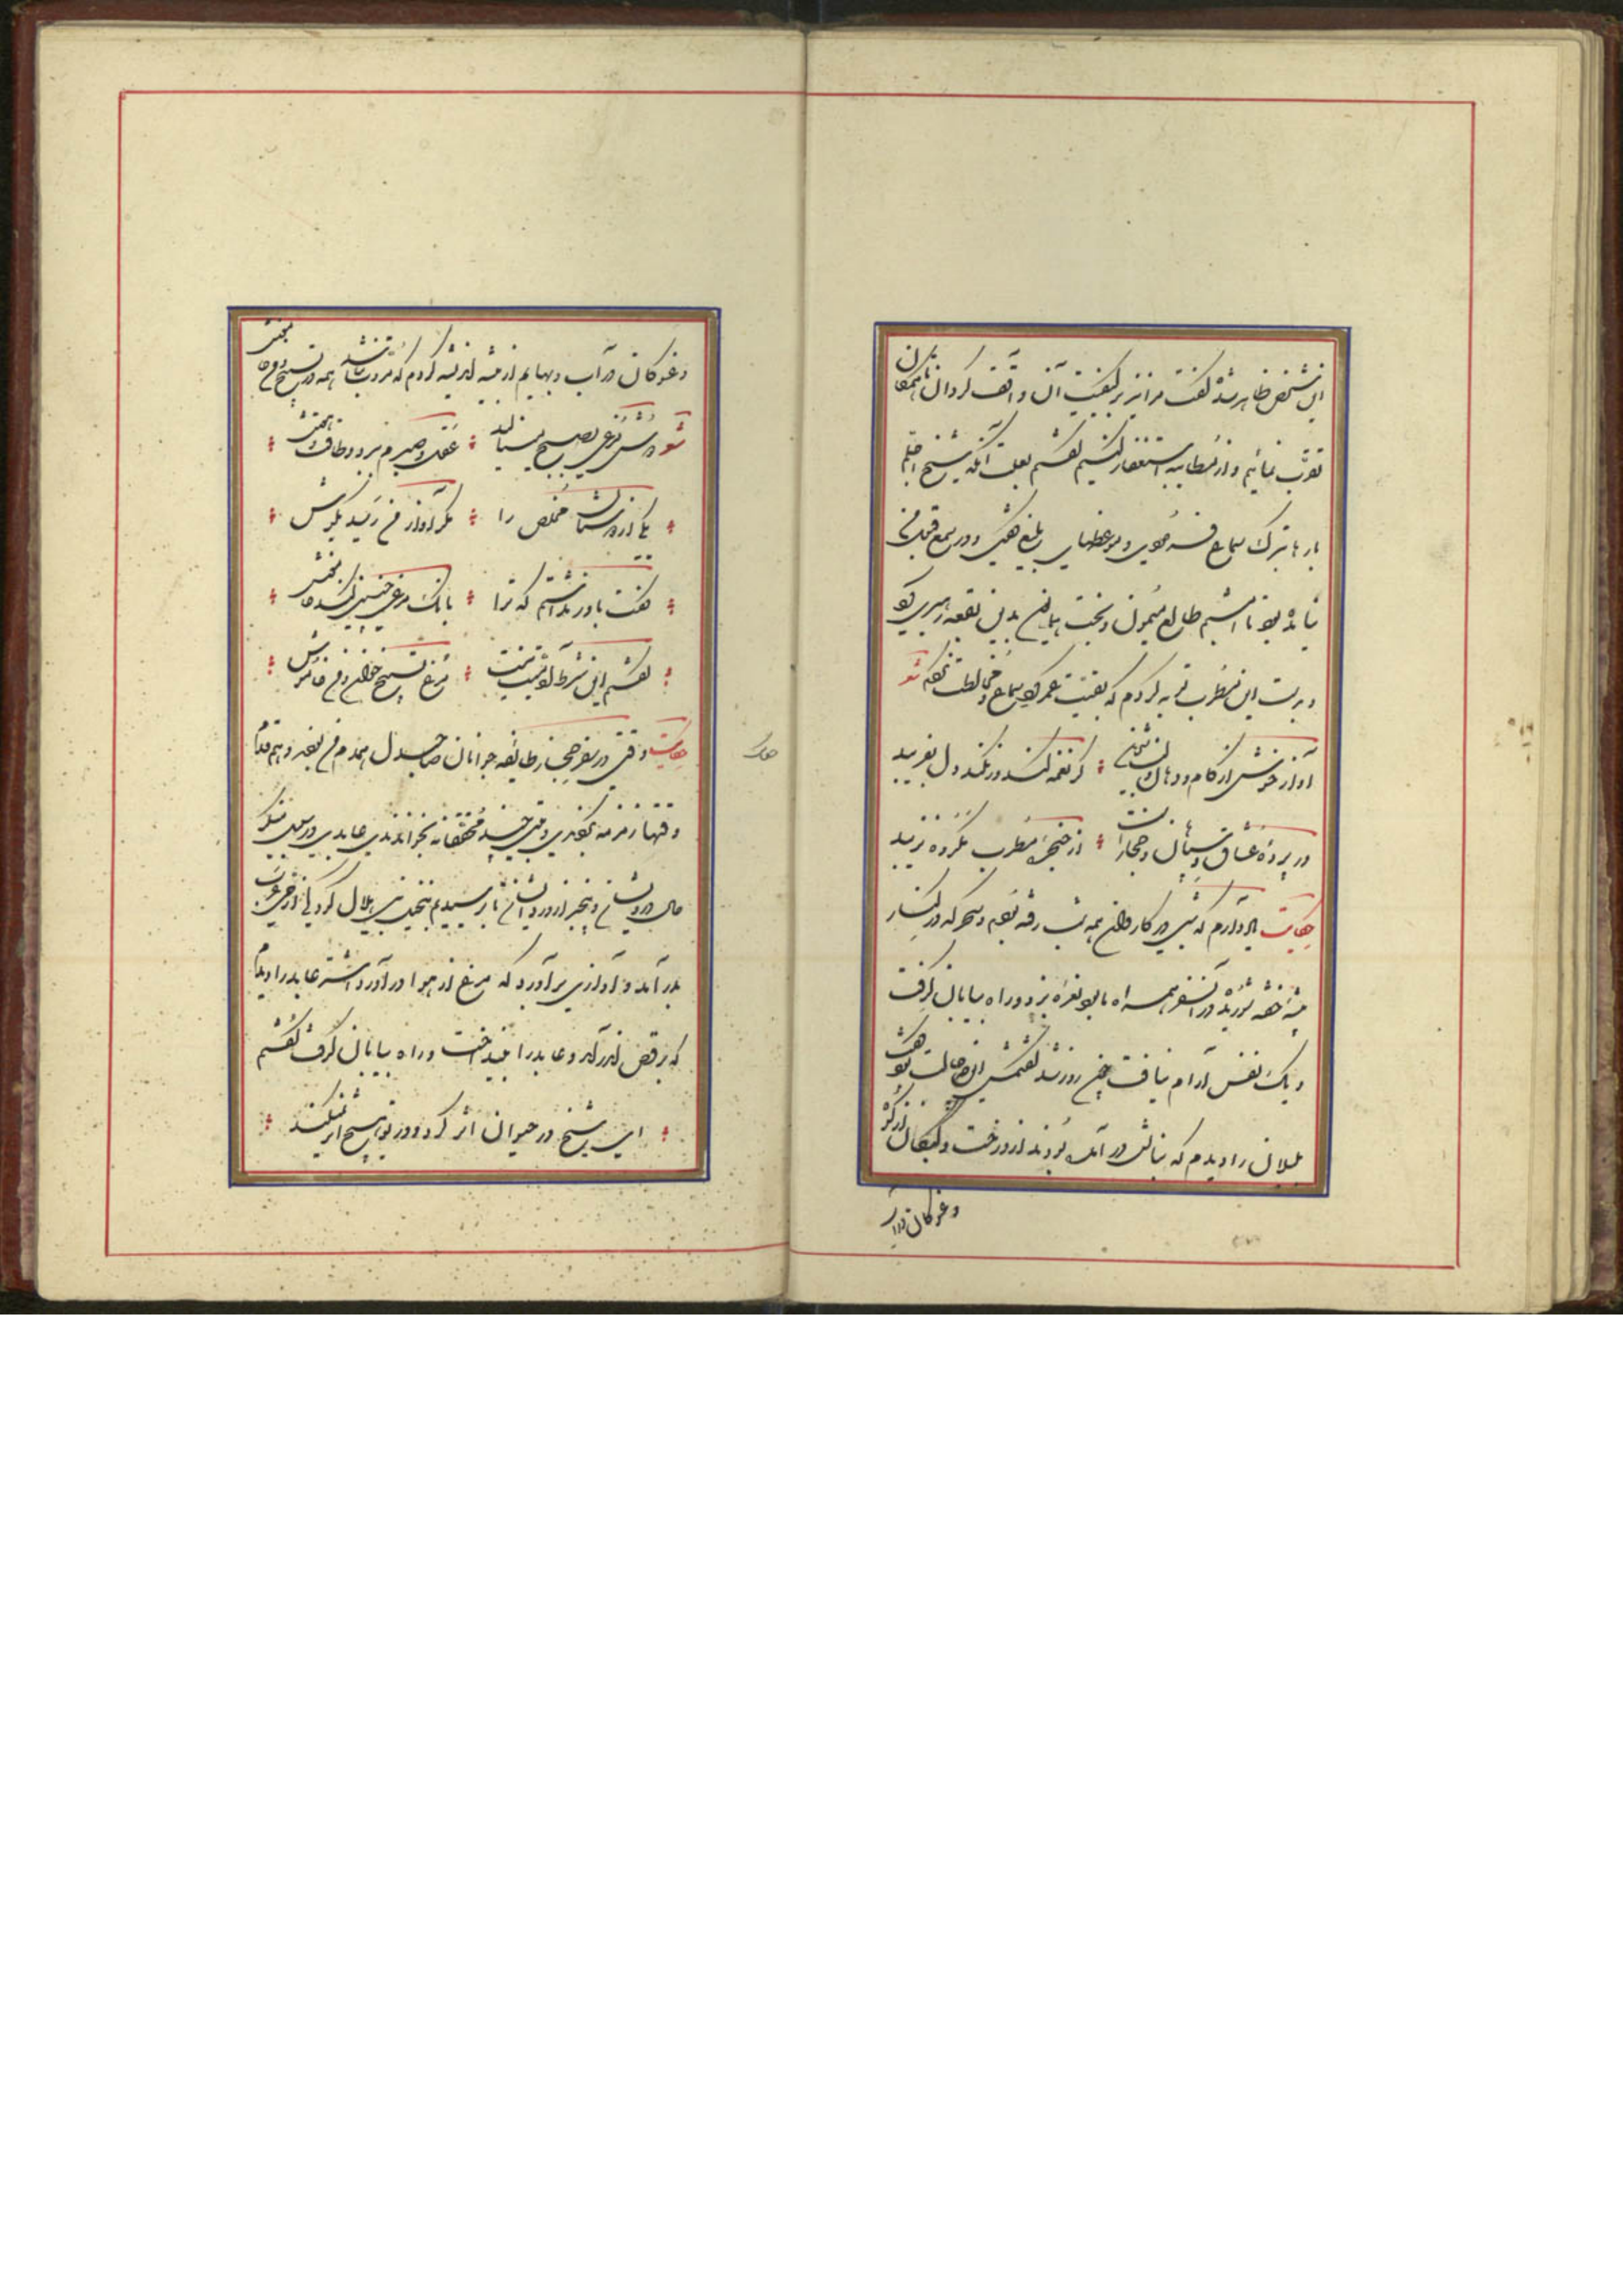 این شخص ظاهر شد گفت مرا نیز بر کیفیت آن واقف گردان تا همگنان
تقرب نمائیم و از مطایبه استغفار کنیم گفتم بعلت آنکه شیخ اجلم
بارها بترک سماع فرمودی و موعظهای بلیغ گفتی و در سمع قبول من
نیامده بود تا امشبم طالع میمون و بخت همایون بدین بقعه رهبری کرد
و بدست این مطرب توبه کردم که بقیت عمر گرد سماع و مخالطت نگردم شعر
آواز خوش از کام و دهان و لب شیرین ؛ گر نغمه کند ور نکند دل بفریبد
در پرده عشاق و سپاهان و حجازست ؛ از حنجره مطرب مکروه نزیبد
حکایت یاد دارم که شبی در کاروان همه شب رفته بودم و سحرگه در کنار
بیشه خفته شوریده در آن سفر همراه ما بود نعره بزد و راه بیابان گرفت
و یک نفس آرام نیافت چون روز شد گفتمش این چه حالت بود گفت
بلبلان را دیدم که بنالش در آمده بودند از درخت و کبکان از کوه
وغوکان در آب
وغوکان در آب و بهایم از بیشه اندیشه کردم که مروت نباشد همه در تسبیح و من خاموش بغفلت خفته
شعر دوش مرغی بصبح مینالید ؛ عقل و صبرم ببرد و طاقت و هوش
یکی از دوستان مخلص را ؛ مگر آواز من رسید بگوش
گفت باور نداشتم که ترا ؛ بانگ مرغی چنین کند مدهوش
گفتم این شرط آدمیت نیست ؛ مرغ تسبیح خوان و من خاموش
حکایت وقتی در سفر حجاز طایفه جوانان صاحبدل همدم من بودند و هم قدم
وقتها زمزمه بکردندی و بیتی چند محققانه بخواندندی عابدی در سبیل منکر
حال درویشان و بیخبر از درد ایشان تا برسیدیم بنخیل بنی هلال کودکی از حی عرب
بدر آمد و آوازی برآورد که مرغ از هوا درآورد اشتر عابد را دیدم
که برقص اندر آمد و عابد را بینداخت و راه بیابان گرفت گفتم
ای شیخ در حیوان اثر کرد و در تو ای شیخ اثر نمیکند